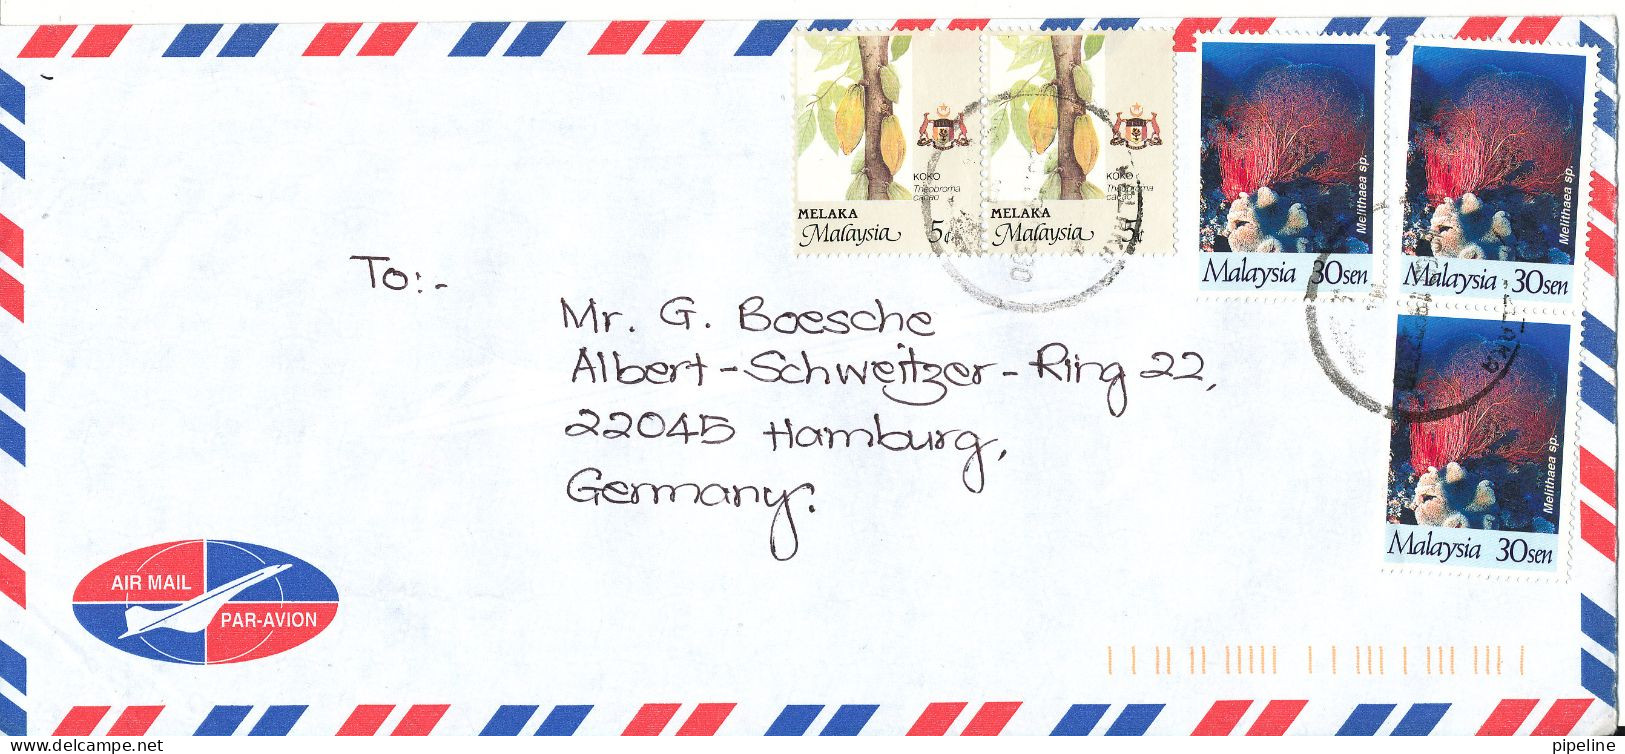 KOKO
Theobroma
cacao
MELAKA
Malaysia 5¢
KOKO
Theobroma
cacao
MELAKA
Malaysia 5¢
Melithaea sp.
Malaysia 30sen
Melithaea sp.
Malaysia 30sen
Melithaea sp.
Malaysia 30sen
To:-
Mr. G. Boesche
Albert-Schweitzer-Ring 22,
22045 Hamburg,
Germany.
AIR MAIL
PAR-AVION
delcampe.net
pipeline